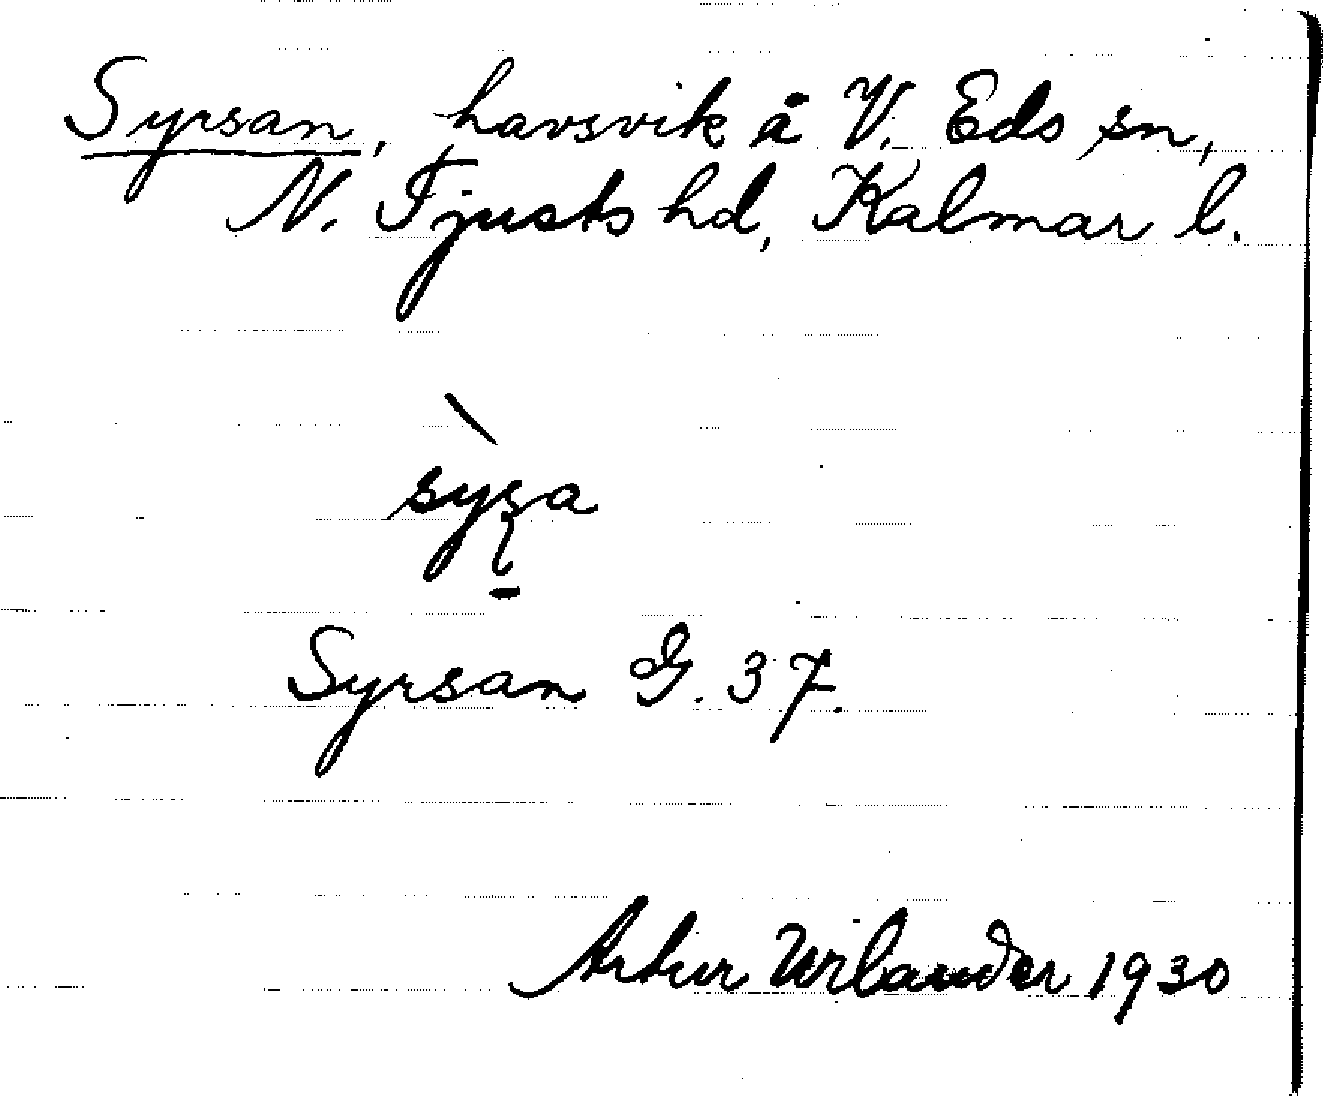 Syrsan, havsvik å V. Eds sn,
N. Tjusts hd, Kalmar l.
Syrsan G. 37.
Artur 1930